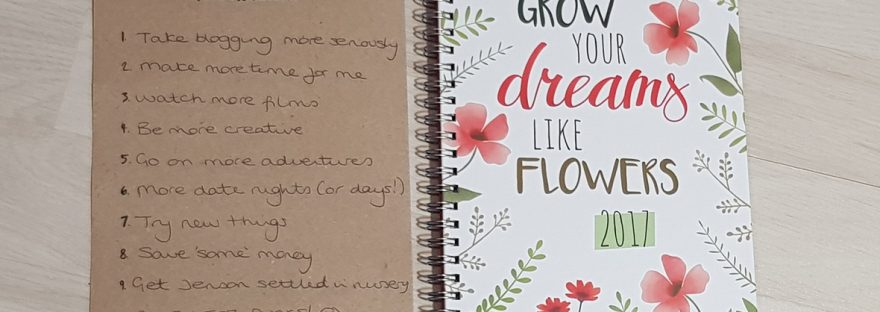 1. Take blogging more seriously
2. make more time for me
3. watch more films
4. Be more creative
5. Go on more adventures
6. More date nights (or days!)
7. Try new things
8. Save 'some' money
9. Get Jenson settled in nursery
GROW
YOUR
dreams
LIKE
FLOWERS
2017